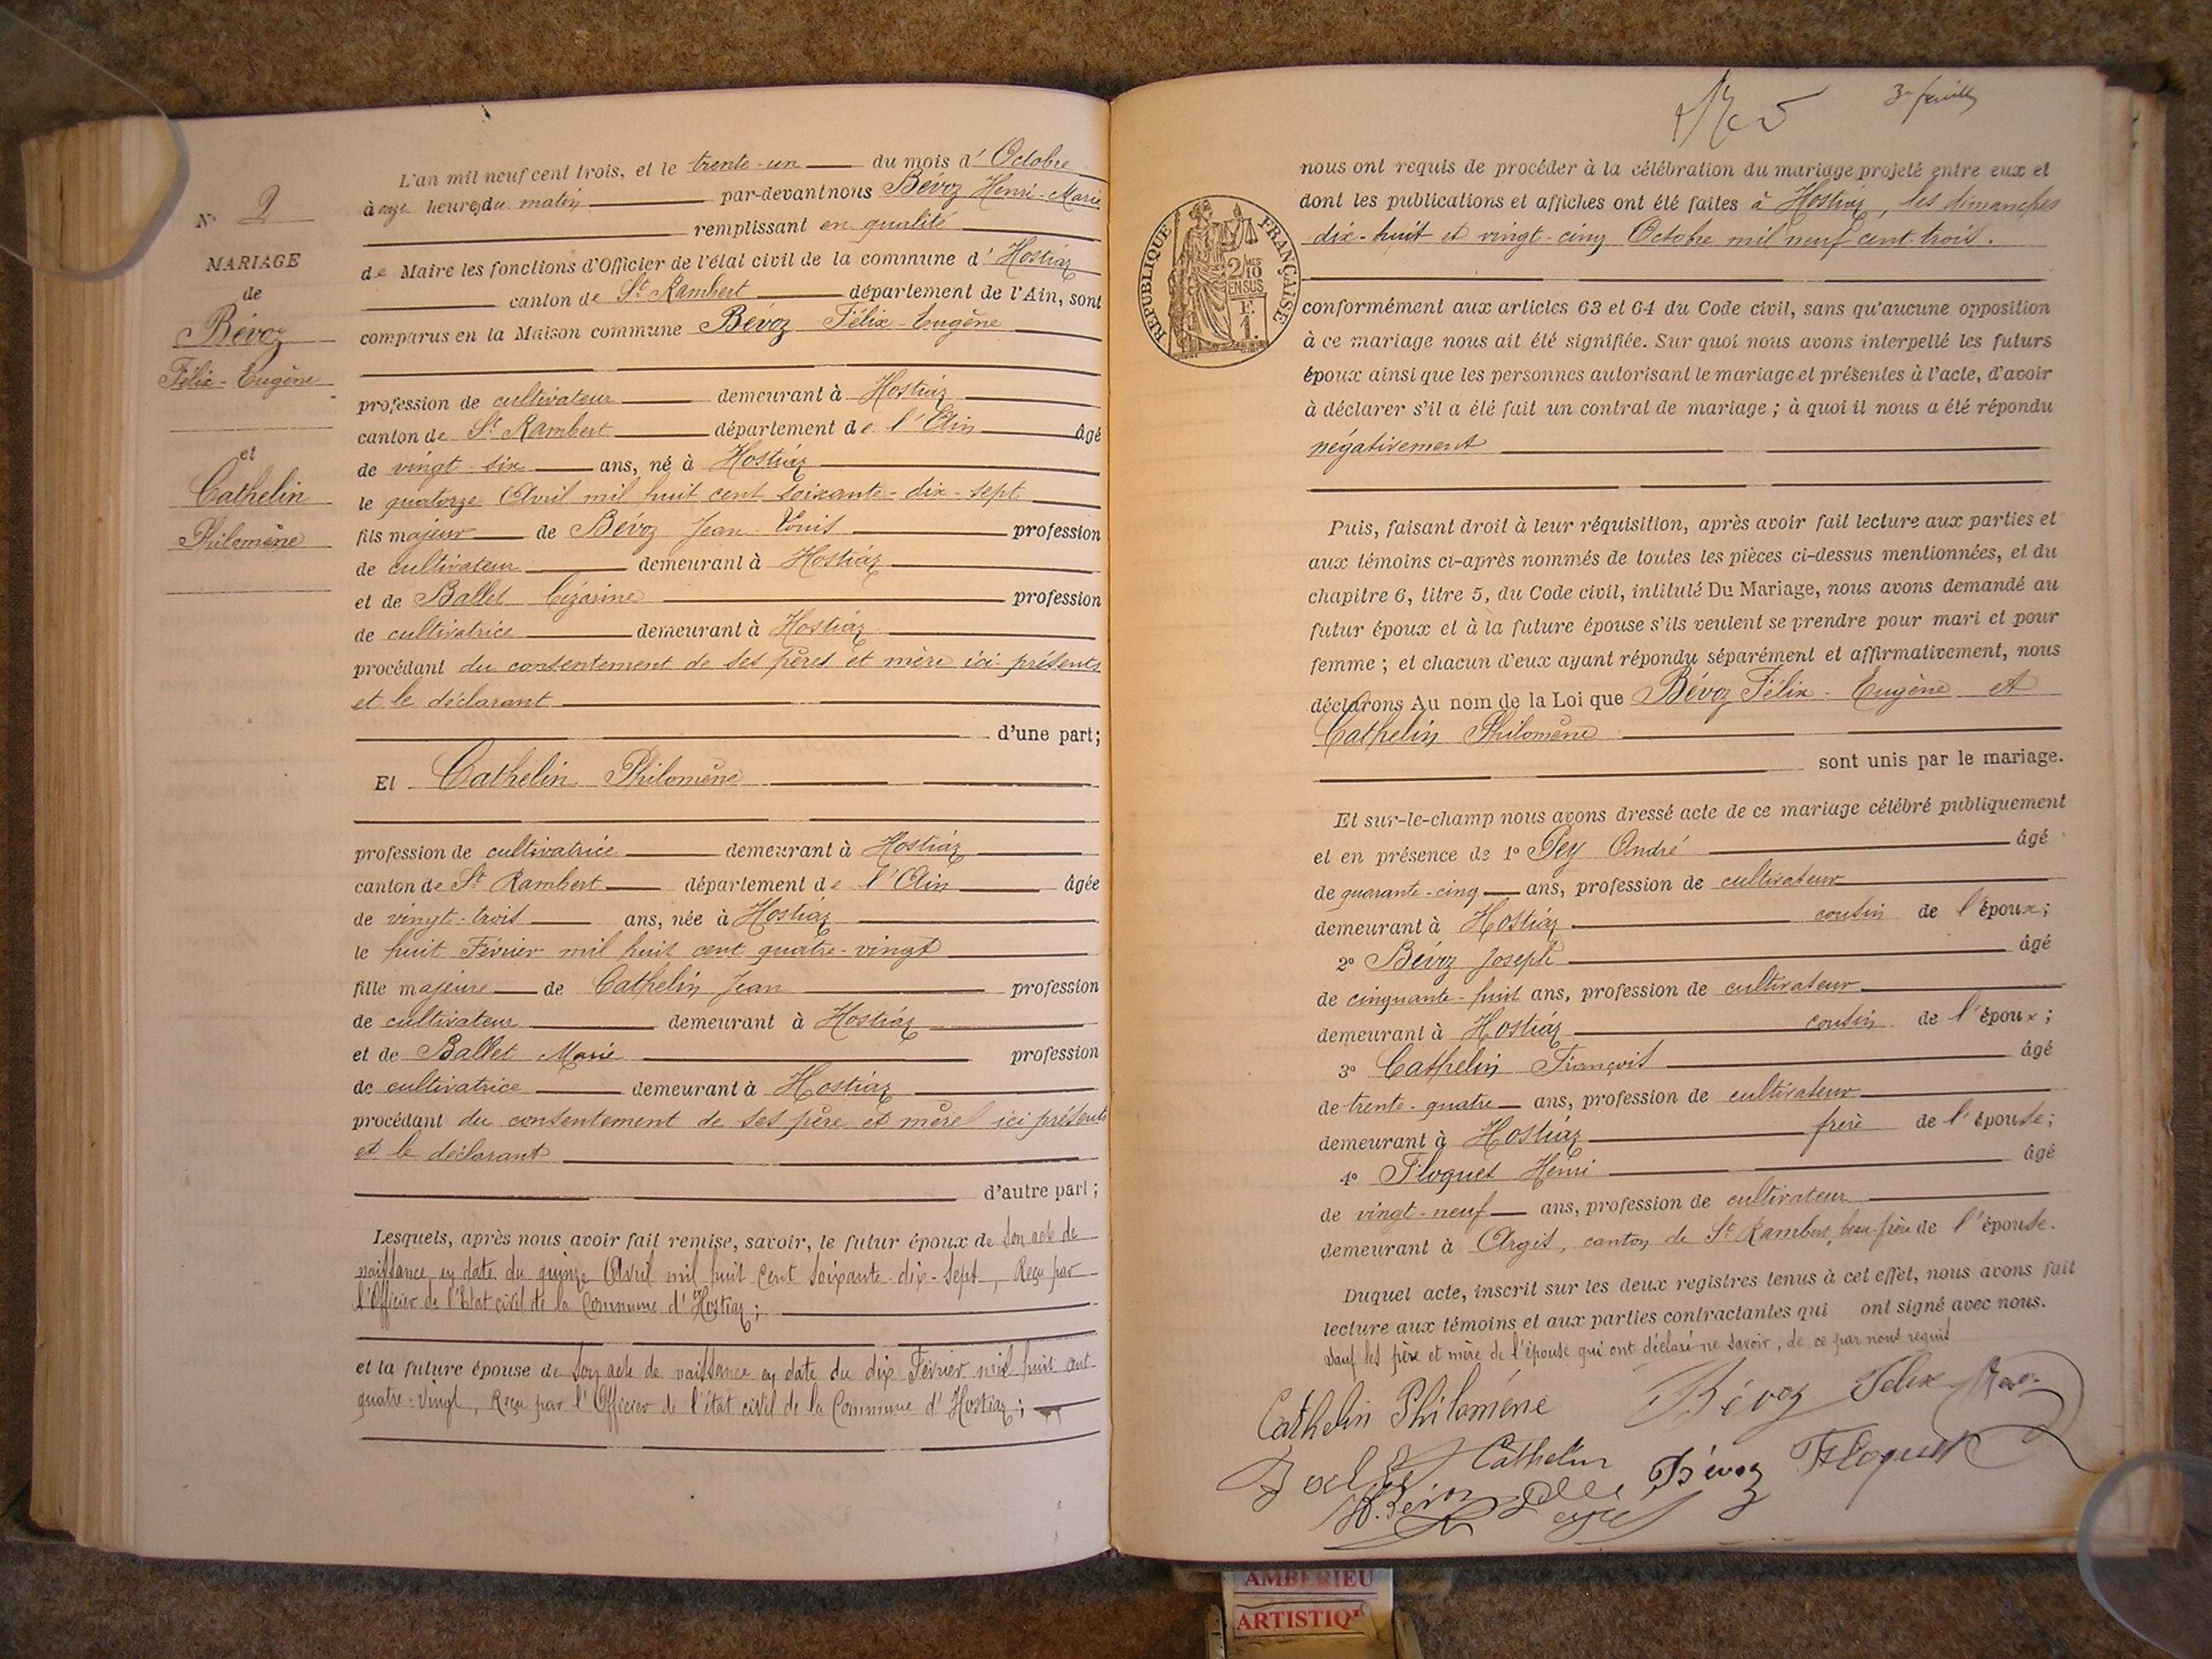 N° 2
MARIAGE
de
Bévoz
Félix-Eugène
et
Cathelin
Philomène
L'an mil neuf cent trois, et le trente-un du mois d'Octobre
à onze heures du matin par-devant nous Bévoz Henri-Marie
remplissant en qualité
de Maire les fonctions d'Officier de l'état civil de la commune d'Hostiaz
canton de St Rambert département de l'Ain, sont
comparus en la Maison commune Bévoz Félix-Eugène
profession de cultivateur demeurant à Hostiaz
canton de St Rambert département de l'Ain âgé
de vingt-six ans, né à Hostiaz
le quatorze Avril mil huit cent soixante-dix-sept
fils majeur de Bévoz Jean-Louis profession
de cultivateur demeurant à Hostiaz
et de Ballet Cézarine profession
de cultivatrice demeurant à Hostiaz
procédant du consentement de ses pères et mère ici présents
et le déclarant
d'une part;
Et Cathelin Philomène
profession de cultivatrice demeurant à Hostiaz
canton de St Rambert département de l'Ain âgée
de vingt-trois ans, née à Hostiaz
le huit Février mil huit cent quatre-vingt
fille majeure de Cathelin Jean profession
de cultivateur demeurant à Hostiaz
et de Ballet Marie profession
de cultivatrice demeurant à Hostiaz
procédant du consentement de ses père et mère ici présents
et le déclarant
d'autre part;
Lesquels, après nous avoir fait remise, savoir, le futur époux de son acte de
naissance en date du quinze Avril mil huit cent soixante-dix-sept, Reçu par
l'Officier de l'Etat civil de la Commune d'Hostiaz;
et la future épouse de son acte de naissance en date du dix Février mil huit cent
quatre-vingt, Reçu par l'Officier de l'état civil de la Commune d'Hostiaz;
3e feuille
RÉPUBLIQUE FRANÇAISE
2/10 MES
EN SUS
F.
1.
nous ont requis de procéder à la célébration du mariage projeté entre eux et
dont les publications et affiches ont été faites à Hostiaz, les dimanches
dix-huit et vingt-cinq Octobre mil neuf cent trois.
conformément aux articles 63 et 64 du Code civil, sans qu'aucune opposition
à ce mariage nous ait été signifiée. Sur quoi nous avons interpellé les futurs
époux ainsi que les personnes autorisant le mariage et présentes à l'acte, d'avoir
à déclarer s'il a été fait un contrat de mariage; à quoi il nous a été répondu
négativement
Puis, faisant droit à leur réquisition, après avoir fait lecture aux parties et
aux témoins ci-après nommés de toutes les pièces ci-dessus mentionnées, et du
chapitre 6, titre 5, du Code civil, intitulé Du Mariage, nous avons demandé au
futur époux et à la future épouse s'ils veulent se prendre pour mari et pour
femme; et chacun d'eux ayant répondu séparément et affirmativement, nous
déclarons Au nom de la Loi que Bévoz Félix-Eugène et
Cathelin Philomène
sont unis par le mariage.
Et sur-le-champ nous avons dressé acte de ce mariage célébré publiquement
et en présence de 1° Pey André âgé
de quarante-cinq ans, profession de cultivateur
demeurant à Hostiaz cousin de l'époux;
2° Bévoz Joseph âgé
de cinquante-huit ans, profession de cultivateur
demeurant à Hostiaz cousin de l'époux;
3° Cathelin François âgé
de trente-quatre ans, profession de cultivateur
demeurant à Hostiaz frère de l'épouse;
4° Floquet Henri âgé
de vingt-neuf ans, profession de cultivateur
demeurant à Argis, canton de St Rambert, beau-frère de l'épouse.
Duquel acte, inscrit sur les deux registres tenus à cet effet, nous avons fait
lecture aux témoins et aux parties contractantes qui ont signé avec nous.
sauf les père et mère de l'épouse qui ont déclaré ne savoir, de ce par nous requis
Cathelin Philomène Bévoz Félix
Cathelin Bévoz Floquet
H. Bévoz
AMBERIEU
ARTISTIQ